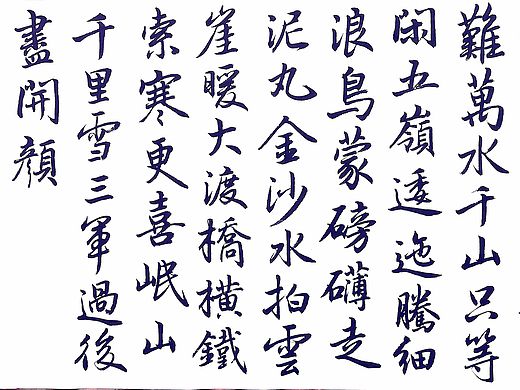 難萬水千山只等
閑五嶺逶迤騰細
浪烏蒙磅礴走
泥丸金沙水拍雲
崖暖大渡橋橫鐵
索寒更喜岷山
千里雪三軍過後
盡開顏